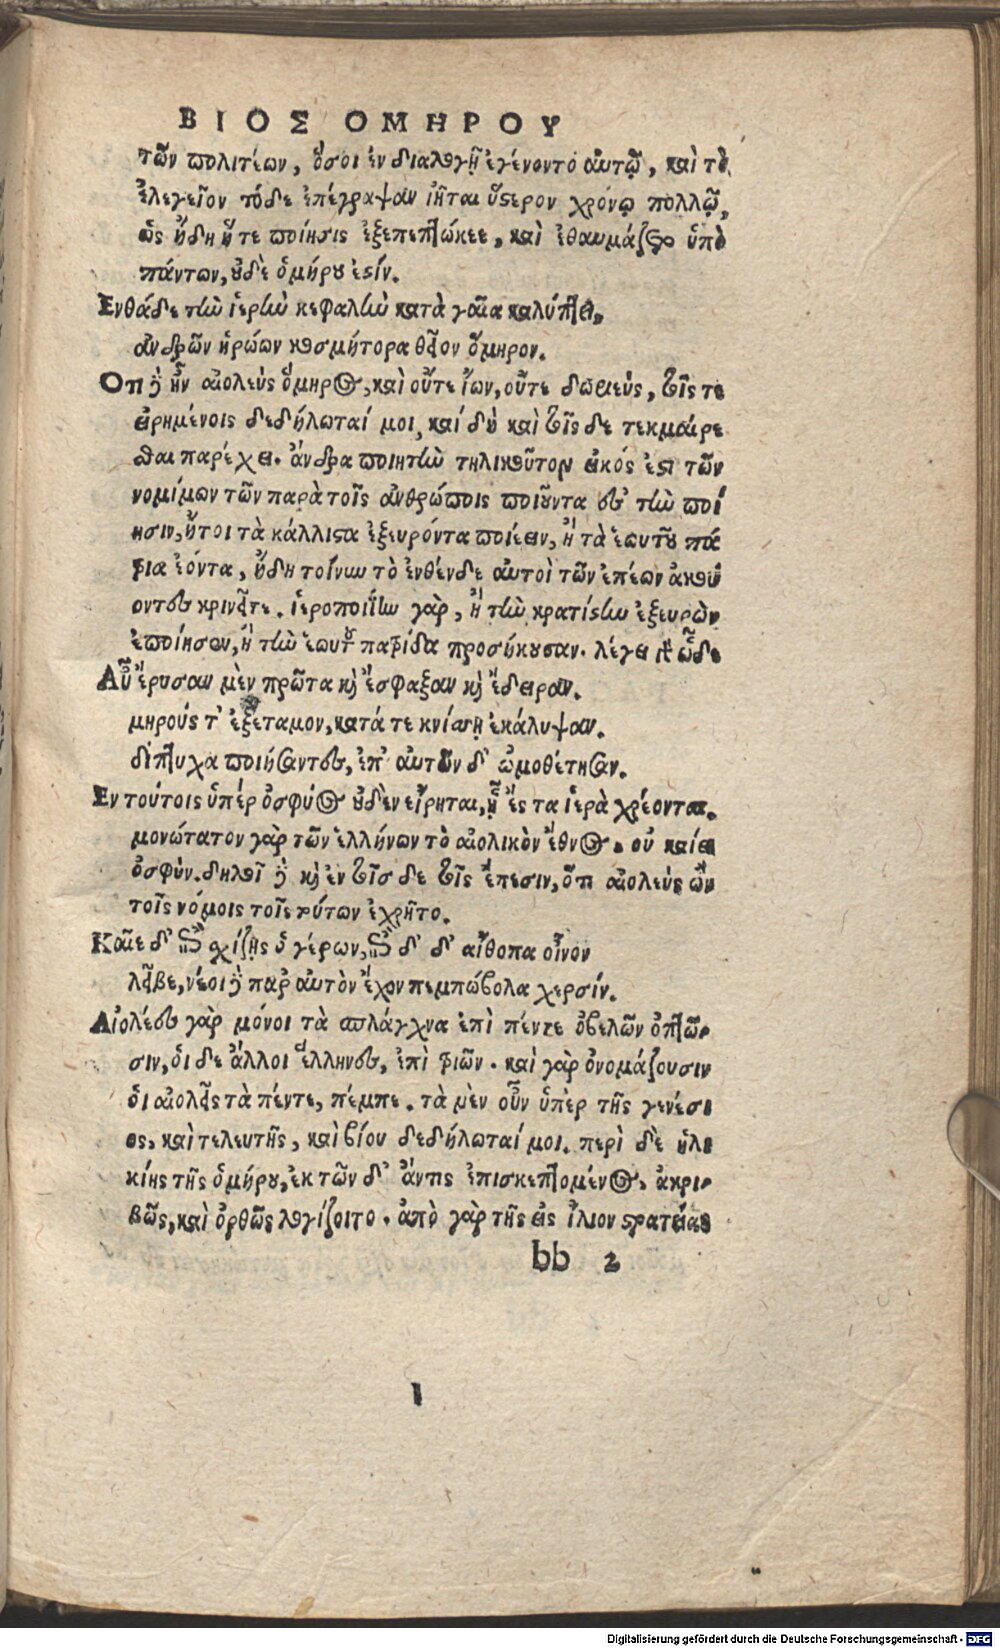 ΒΙΟΣ ΟΜΗΡΟΥ
τῶν πολιτέων, ὅσοι ἐν διαλογῇ ἐγένοντο αὐτῷ, καὶ τὸ
ἐλεγεῖον τόδε ἐπέγραψαν ἰῆται ὕστερον χρόνῳ πολλῷ,
ὡς ἤδη ἥ τε ποίησις ἐξεπεπτώκεε, καὶ ἐθαυμάζετο ὑπὸ
πάντων, οὐδὲ ὁμήρου ἐστίν.
Ενθάδε τὴν ἱερὴν κεφαλὴν κατὰ γαῖα καλύπτει,
ἀνδρῶν ἡρώων κοσμήτορα θεῖον ὅμηρον.
Οτι δὲ ἦν αἰολεὺς ὅμηρος, καὶ οὔτε ἴων, οὔτε δωριεὺς, τοῖς τε
εἰρημένοις δεδήλωταί μοι, καί δὴ καὶ τοῖς δε τεκμαίρε
σθαι παρέχει. ἄνδρα ποιητὴν τηλικοῦτον εἰκός ἐστι τῶν
νομίμων τῶν παρὰ τοῖς ἀνθρώποις ποιοῦντα ἐς τὴν ποί
ησιν, ἤτοι τὰ κάλλιστα ἐξευρόντα ποιέειν, ἢ τὰ ἑωυτοῦ πά
τρια ἐόντα, ἤδη τοίνυν τὸ ἐνθένδε αὐτοὶ τῶν ἐπέων ἀκού
οντες κρινεῖτε. ἱεροποιΐην γὰρ, ἢ τὴν κρατίστην ἐξευρὼν
ἐποίησεν, ἢ τὴν ἑωυτοῦ πατρίδα προσήκουσαν. λέγει γὰρ ὧδε
Αὖ ἔρυσαν μὲν πρῶτα καὶ ἔσφαξαν καὶ ἔδειραν.
μηρούς τ' ἐξέταμον, κατά τε κνίσῃ ἐκάλυψαν.
δίπτυχα ποιήσαντες, ἐπ' αὐτῶν δ' ὠμοθέτησαν.
Εν τούτοις ὑπέρ ὀσφύος οὐδὲν εἴρηται, ᾗ ἔς τα ἱερὰ χρέονται.
μονώτατον γὰρ τῶν ἑλλήνων τὸ αἰολικὸν ἔθνος. οὐ καίει
ὀσφύν. δηλοῖ δὲ καὶ ἐν τοῖσ δε τοῖς ἔπεσιν, ὅτι αἰολεὺς ὢν
τοῖς νόμοις τοῖς τούτων ἐχρῆτο.
Καῖε δ' ἐπὶ σχίζῃς ὁ γέρων, ἐπὶ δ' δ' αἴθοπα οἶνον
λεῖβε, νέοι δὲ παρ' αὐτὸν ἔχον πεμπώβολα χερσίν.
Αἰολέες γὰρ μόνοι τὰ σπλάγχνα ἐπὶ πέντε ὀβελῶν ὀπτῶ-
σιν, ὁι δε ἄλλοι ἕλληνες, ἐπὶ τριῶν. καὶ γὰρ ὀνομάζουσιν
ὁι αἰολεῖς τὰ πέντε, πέμπε. τὰ μὲν οὖν ὑπὲρ τῆς γενέσι
ος, καὶ τελευτῆς, καὶ βίου δεδήλωταί μοι. περὶ δὲ ἡλι
κίης τῆς ὁμήρου, ἐκ τῶν δ' ἄντις ἐπισκεπτομένος, ἀκρι-
βῶς, καὶ ὀρθῶς λογίζοιτο. ἀπὸ γὰρ τῆς εἰς ἴλιον στρατείας
bb 2